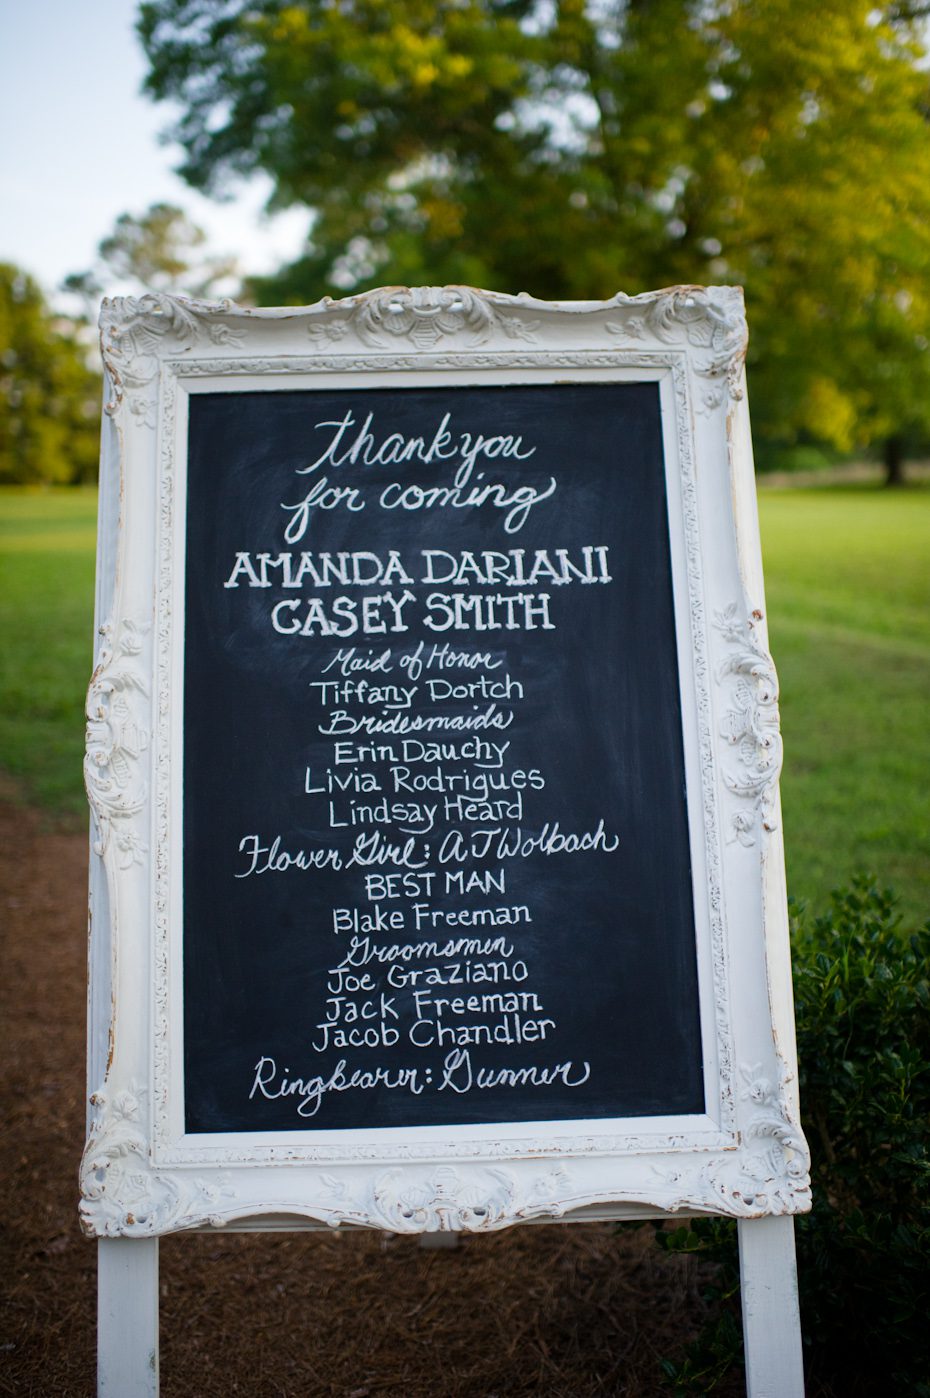 thank you
for coming
AMANDA DARIANI
CASEY SMITH
Maid of Honor
Tiffany Dortch
Bridesmaids
Erin Dauchy
Livia Rodrigues
Lindsay Heard
Flower Girl: AJ Wolbach
BEST MAN
Blake Freeman
Groomsmen
Joe Graziano
Jack Freeman
Jacob Chandler
Ringbearer: Gunner